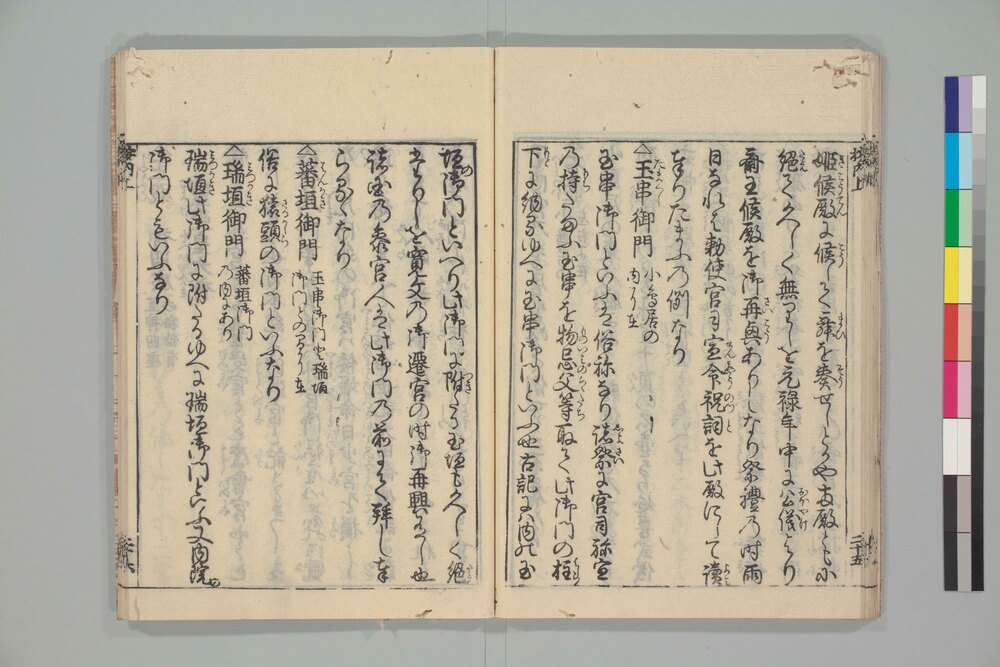 姫候殿に候して舞を奏せしとかや古殿ともに
絶て久しく無りしを元禄年中に公儀より
爾王候殿を御再興ありしなり祭禮の時雨
日なれは勅使宮司宣命祝詞を此殿にして讀
奉りたまふの例なり
玉串御門 小鳥居の内に在
玉串御門といふは俗称なり諸祭に宮司祢宣
の持たまふ玉串を物忌父等取て此御門の柱
下に納るゆへに玉串御門といふ也古記には内の玉
垣御門といへり此御門に附たる玉垣も久しく絶
たりしを寛文の御遷宮の時御再興ありし也
諸国の参宮人は此御門の前にて拜し奉
らるゝなり
蕃垣御門 玉串御門と瑞垣御門との間に在
俗に猿頭の御門といふなり
瑞垣御門 蕃垣御門の内にあり
瑞垣此御門に附たるゆへに瑞垣御門といふ又内院
御門ともいふなり